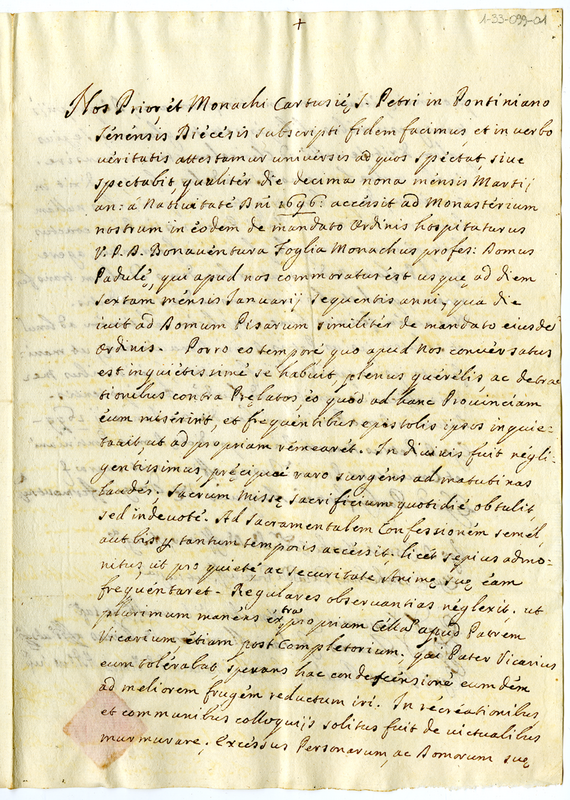 1-33-099-01
+
Nos Prior, et Monachi Cartusię S. Petri in Pontiniano
Senensis Diecesis subscripti fidem facimus, et in verbo
veritatis attestamur universis ad quos spectat, sive
spectabit, qualiter die decima nona mensis Martij
an: a Nativitate Dni 1696: accessit ad Monasterium
nostrum in eodem de mandato Ordinis hospitaturus
V. P. D. Bonaventura Foglia Monachus profes: Domus
Padulę, qui apud nos commoratus est usque ad diem
sextam mensis Januarij sequentis anni, qua die
ivit ad Domum Pisarum similiter de mandato eiusdē
Ordinis. Porro eo tempore quo apud Nos conversatus
est inquietissimè se habuit, plenus querelis, ac detrac
tionibus contra Pręlatos, eo quod ad hanc Provinciam
eum miserint, et frequentibus epistolis ipsos inquie-
tavit, ut ad propriam remearet. In divinis fuit negli-
gentissimus pręcipuè raro surgens ad matutinas
laudes. Sacrum Missę sacrificium quotidiè obtulit
sed indevotè. Ad Sacramentalem Confessionem semel,
aut bis tantum temporis accessit, licet sępius admo-
nitus, ut pro quiete ac securitate Animę suę eam
frequentaret. Regulares observantias neglexit, ut
plurimum manens extra propriam Cellā apud Patrem
Vicarium etiam post Completorium, qui Pater Vicarius
eum tolerabat sperans hac condescensione eumdem
ad meliorem frugem reductum iri. In recreationibus,
et communibus colloquijs solitus fuit de victualibus
murmurare, Excessus Personarum, ac Domorum suę